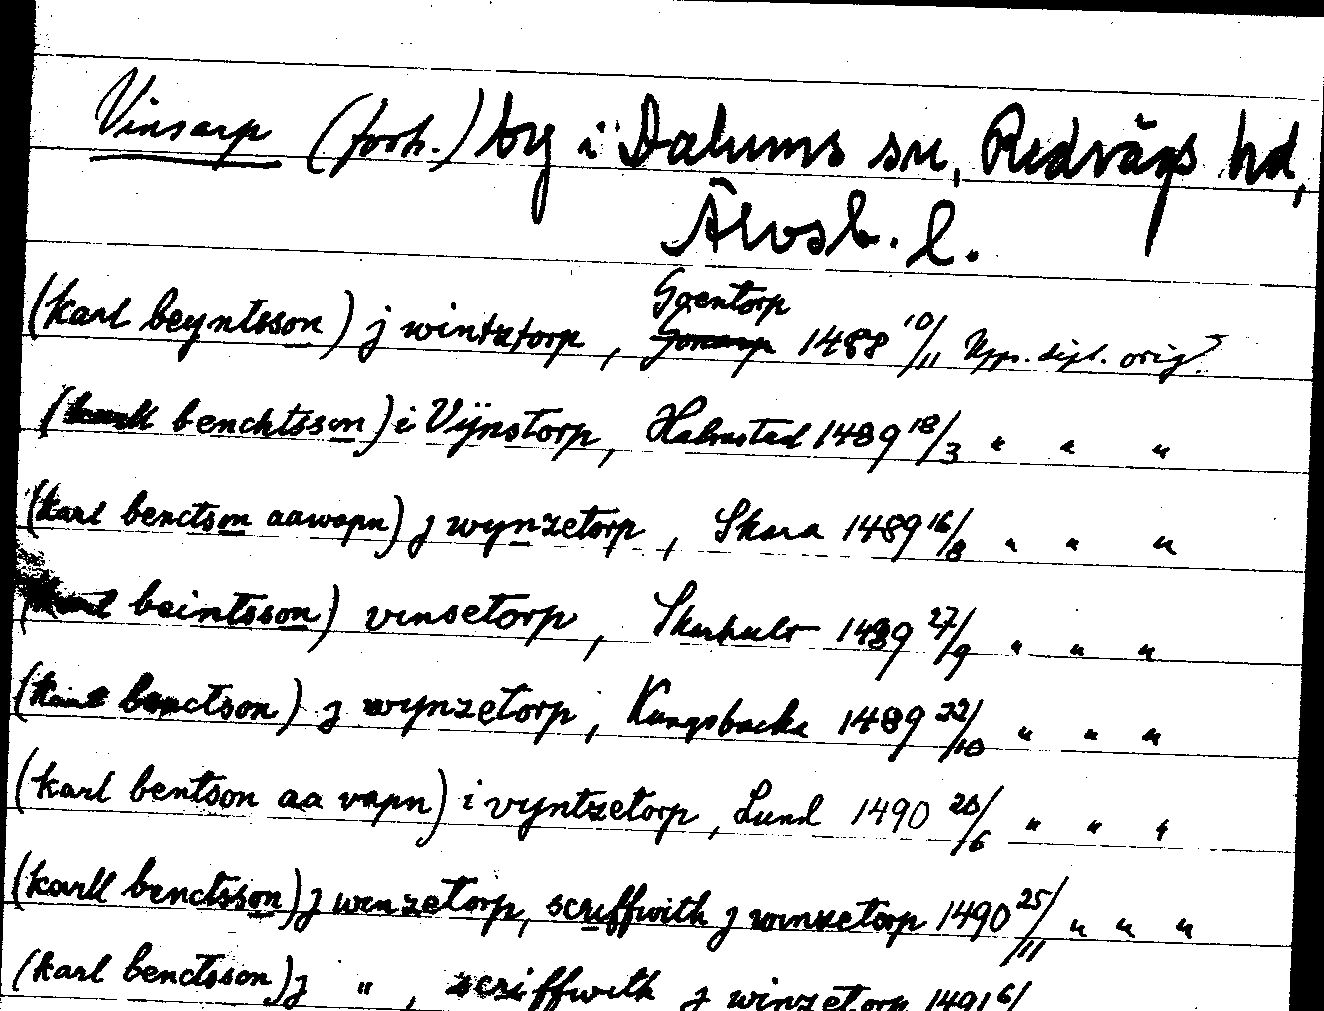 Vinsarp (forh.) by i Dalums sn, Redvägs hd,
Älvsb. l.
Goentorp
(karl beyntsson) j wintztorp, 1488 10/11 Upps. dipl. orig.
(karll benchtsson) i Vÿnstorp, Halmstad 1489 18/3 " " "
(karl benctson aawapn) j wynzetorp, Skara 1489 16/8 " " "
(karl beintsson) vinsetorp, 1489 27/9 " " "
(karl benctson) j wynzetorp, Kungsbacka 1489 22/10 " " "
(karl bentson aa vapn) i vyntzetorp, Lund 1490 20/6 " " "
(karll benctsson) j winzetorp, scriffwith j winzetorp 1490 25/11 " " "
(karl benctsson) j " , scriffwith j winzetorp 1491 6/